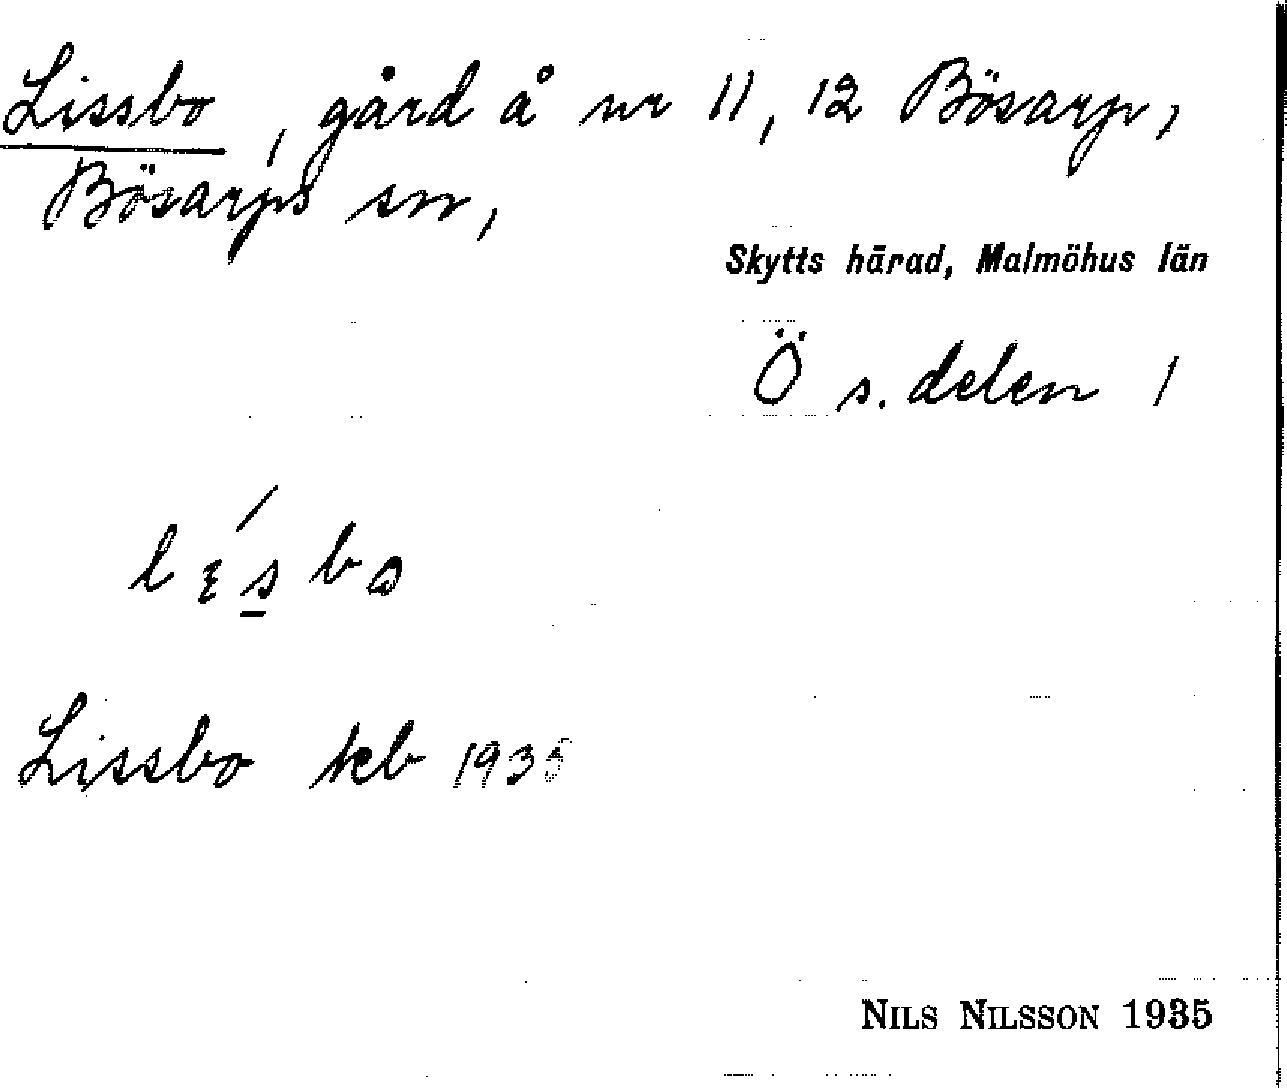 Lissbo, gård å nr 11, 12 Bösarp,
Bösarps sn,
Skytts härad, Malmöhus län
Ö s. delen 1
Lissbo kb 1935
NILS NILSSON 1935